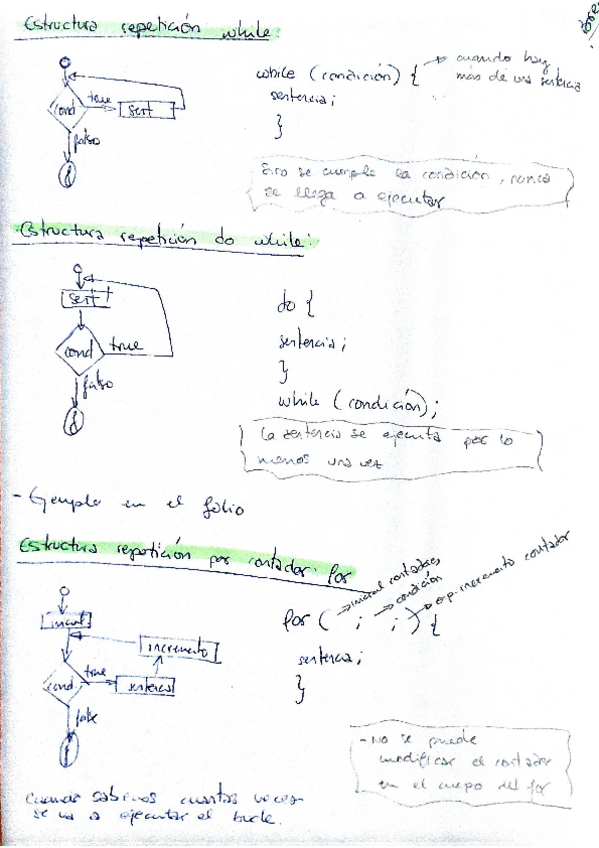 Estructura repetición while:
while (condición) {
→ cuando hay
más de una sentencia
sentencia;
}
cond
true
sent
falso
f
Si no se cumple la condición, nunca
se llega a ejecutar
Estructura repetición do while:
sent
cond
true
falso
f
do {
sentencia;
}
while (condición);
La sentencia se ejecuta por lo
menos una vez
- Ejemplo en el folio
Estructura repetición por contador: for
for ( ; ; ) {
→ condición
→ exp. incremento contador
sentencia;
}
incremento
cond
true
sentencia
false
f
- No se puede
modificar el contador
en el cuerpo del for
Cuando sabemos cuantas veces
se va a ejecutar el bucle.